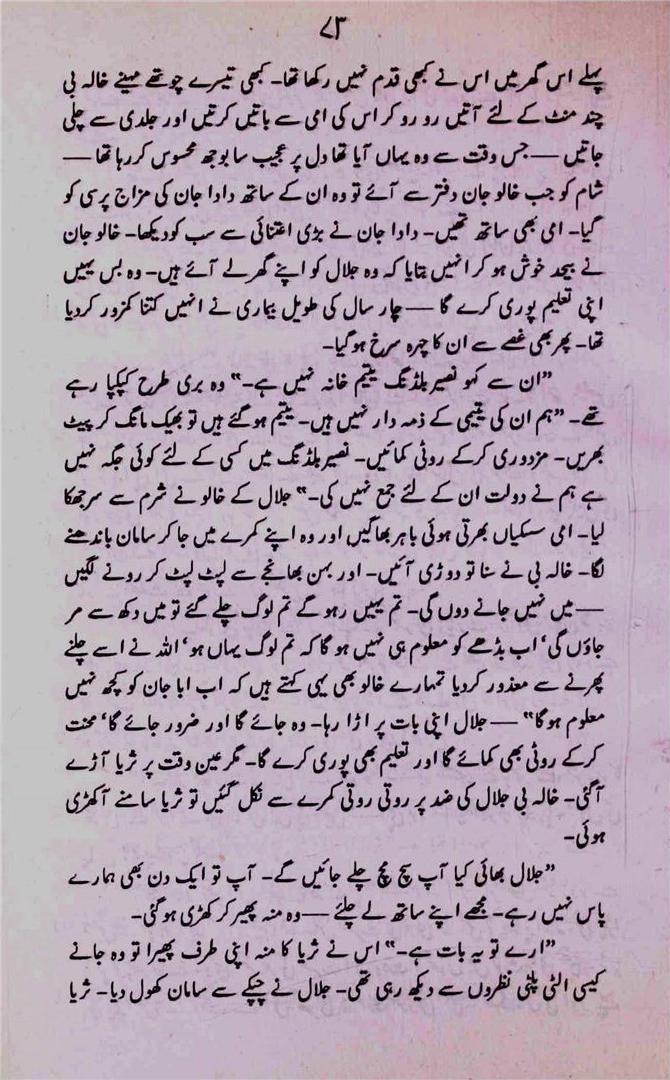 ۷۳
پہلے اس گھر میں اس نے کبھی قدم نہیں رکھا تھا۔ کبھی تیسرے چوتھے مہینے خالہ بی
چند منٹ کے لئے آتیں رو رو کر اس کی امی سے باتیں کرتیں اور جلدی سے چلی
جاتیں — جس وقت سے وہ یہاں آیا تھا دل پر عجیب سا بوجھ محسوس کر رہا تھا —
شام کو جب خالو جان دفتر سے آئے تو وہ ان کے ساتھ دادا جان کی مزاج پرسی کو
گیا۔ امی بھی ساتھ تھیں۔ دادا جان نے بڑی اعتنائی سے سب کو دیکھا۔ خالو جان
نے بیحد خوش ہو کر انہیں بتایا کہ وہ جلال کو اپنے گھر لے آئے ہیں۔ وہ بس یہیں
اپنی تعلیم پوری کرے گا — چار سال کی طویل بیماری نے انہیں کتنا کمزور کردیا
تھا۔ پھر بھی غصے سے ان کا چہرہ سرخ ہوگیا۔
”ان سے کہو نصیر بلڈنگ یتیم خانہ نہیں ہے۔“ وہ بری طرح کپکپا رہے
تھے۔ ”ہم ان کی یتیمی کے ذمہ دار نہیں ہیں۔ یتیم ہوگئے ہیں تو بھیک مانگ کر پیٹ
بھریں۔ مزدوری کرکے روٹی کمائیں۔ نصیر بلڈنگ میں کسی کے لئے کوئی جگہ نہیں
ہے ہم نے دولت ان کے لئے جمع نہیں کی۔“ جلال کے خالو نے شرم سے سرجھکا
لیا۔ امی سسکیاں بھرتی ہوئی باہر بھاگیں اور وہ اپنے کمرے میں جا کر سامان باندھنے
لگا۔ خالہ بی نے سنا تو دوڑی آئیں۔ اور بہن بھانجے سے لپٹ لپٹ کر رونے لگیں
— میں نہیں جانے دوں گی۔ تم یہیں رہو گے تم لوگ چلے گئے تو میں دکھ سے مر
جاؤں گی‘ اب بڈھے کو معلوم ہی نہیں ہو گا کہ تم لوگ یہاں ہو‘ اللہ نے اسے چلنے
پھرنے سے معذور کردیا تمہارے خالو بھی یہی کہتے ہیں کہ اب ابا جان کو کچھ نہیں
معلوم ہوگا“ — جلال اپنی بات پر اڑا رہا۔ وہ جائے گا اور ضرور جائے گا‘ محنت
کرکے روٹی بھی کمائے گا اور تعلیم بھی پوری کرے گا۔ مگر عین وقت پر ثریا آڑے
آگئی۔ خالہ بی جلال کی ضد پر روتی روتی کمرے سے نکل گئیں تو ثریا سامنے آکھڑی
ہوئی۔
”جلال بھائی کیا آپ سچ مچ چلے جائیں گے۔ آپ تو ایک دن بھی ہمارے
پاس نہیں رہے۔ مجھے اپنے ساتھ لے چلئے — وہ منہ پھیر کر کھڑی ہوگئی۔
”ارے تو یہ بات ہے۔“ اس نے ثریا کا منہ اپنی طرف پھیرا تو وہ جانے
کیسی الٹی پلٹی نظروں سے دیکھ رہی تھی۔ جلال نے چپکے سے سامان کھول دیا۔ ثریا